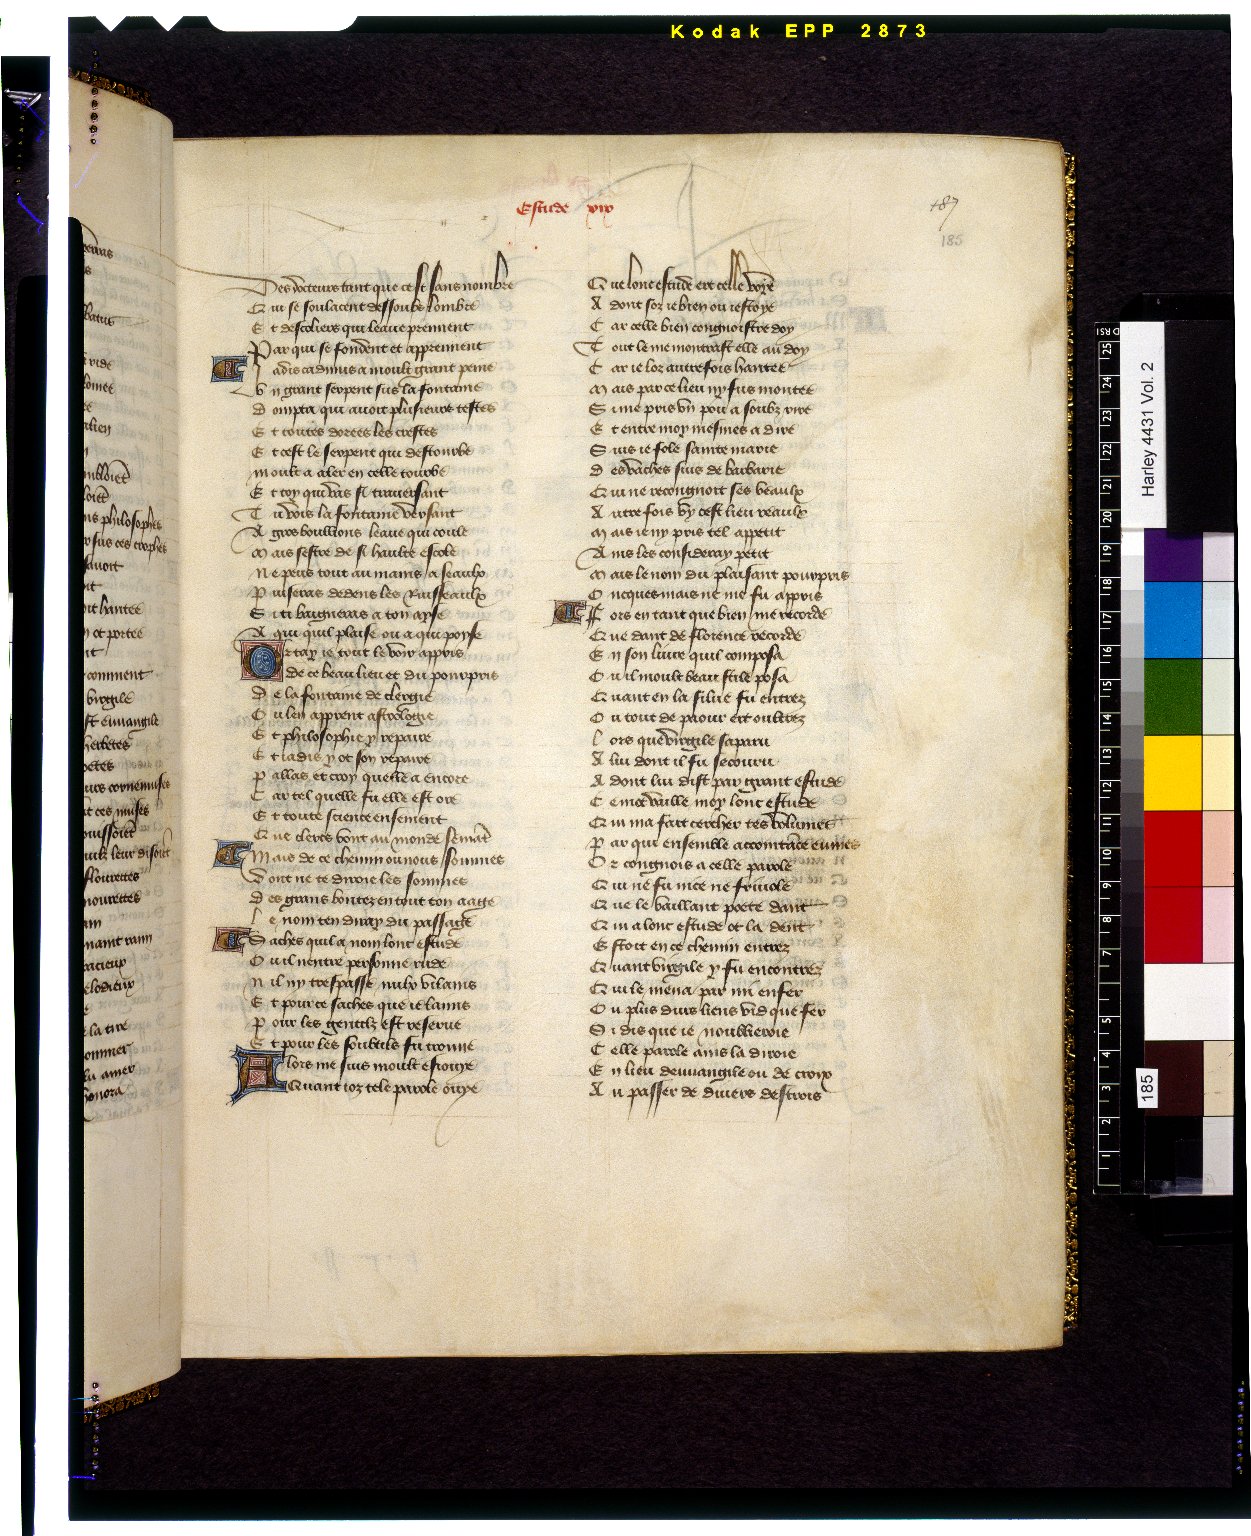 Kodak EPP 2873
Estude xix
187
185
Des docteurs tant que cest sans nombre
Qui se soulacent dessoubz lombre
Et descoliers qui leaue prennent
Par qui se fondent et apprennent
Jadis cadmus a moult grant peine
Un grant serpent sus la fontaine
Dompta qui auoit plusieurs testes
Et toutes dorees les crestes
Et cest le serpent qui destourbe
Moult a aler en celle tourbe
Et toy qui vas si trauersant
Tu vois la fontaine versant
A gros boullons leaue qui coule
Mais sestre de si haulte escole
Ne peus tout au mains a seaulx
Puiseras dedens les ruisseaulx
Si ti baigneras a ton ayse
A qui quil plaise ou a qui poise
Or tay ie tout le voir appris
de ce beau lieu et du pourpris
De la fontaine de clergie
Ou len apprent astrologie
Et philosophie y repaire
Et iadis y ot son repaire
Pallas et croy quelle a encore
Car tel quelle fu elle est ore
Et toute science ensement
Que clercs vont au monde semant
Mais de ce chemin ou nous sommes
Dont ne te diroie les sommes
Des grans bontez en tout ton aage
Le nom ten diray du passage
Saches quil a nom lonc estude
Ou il nentre personne rude
Nil ny trespasse nulx vilains
Et pour ce saches que ie lains
Pour les gentilz est reserue
Et pour les soubtils fu trouue
Alors me suis moult esiouye
Quant ioz tele parole ouye
Que lonc estude ert celle voye
A dont soz ie bien ou iestoye
Car celle bien congnoistre doy
Tout le me monstrast elle au doy
Car ie loz autrefois hantee
Mais par ce lieu ny fus montee
Si me pris vn pou a soubz rire
Et entre moy mesmes a dire
Suis ie fole sainte marie
des vaches suis de barbarie
Qui ne recongnoit ses veaulx
Autre fois vy cest lieu reaulx
Mais ie ny pris tel appetit
Ains les consideray petit
Mais le nom du plaisant pourpris
Oncques mais ne me fu appris
Fors en tant que bien me recorde
Que dant de florence recorde
En son liure quil composa
Ou il moult beau stile posa
Quant en la silue fu entrez
Ou tout de paour ert oultrez
Lors que virgile saparu
A lui dont il fu secouru
A dont lui dist par grant estude
Ce mot vaille moy lonc estude
Qui ma fait cercher tes volumes
Par qui ensemble accointance eumes
Or congnois a celle parole
Qui ne fu nice ne friuole
Que le vaillant poete dant
Qui a lonc estude ot la dent
Estoit en ce chemin entrez
Quant virgile y fu encontrez
Qui le mena par mi enfer
Ou plus durs liens vid que fer
Si dis que ie noublieroie
Celle parole ains la diroie
En lieu deuuangile ou de croix
Au passer de diuers destrois
Harley 4431 Vol. 2
185